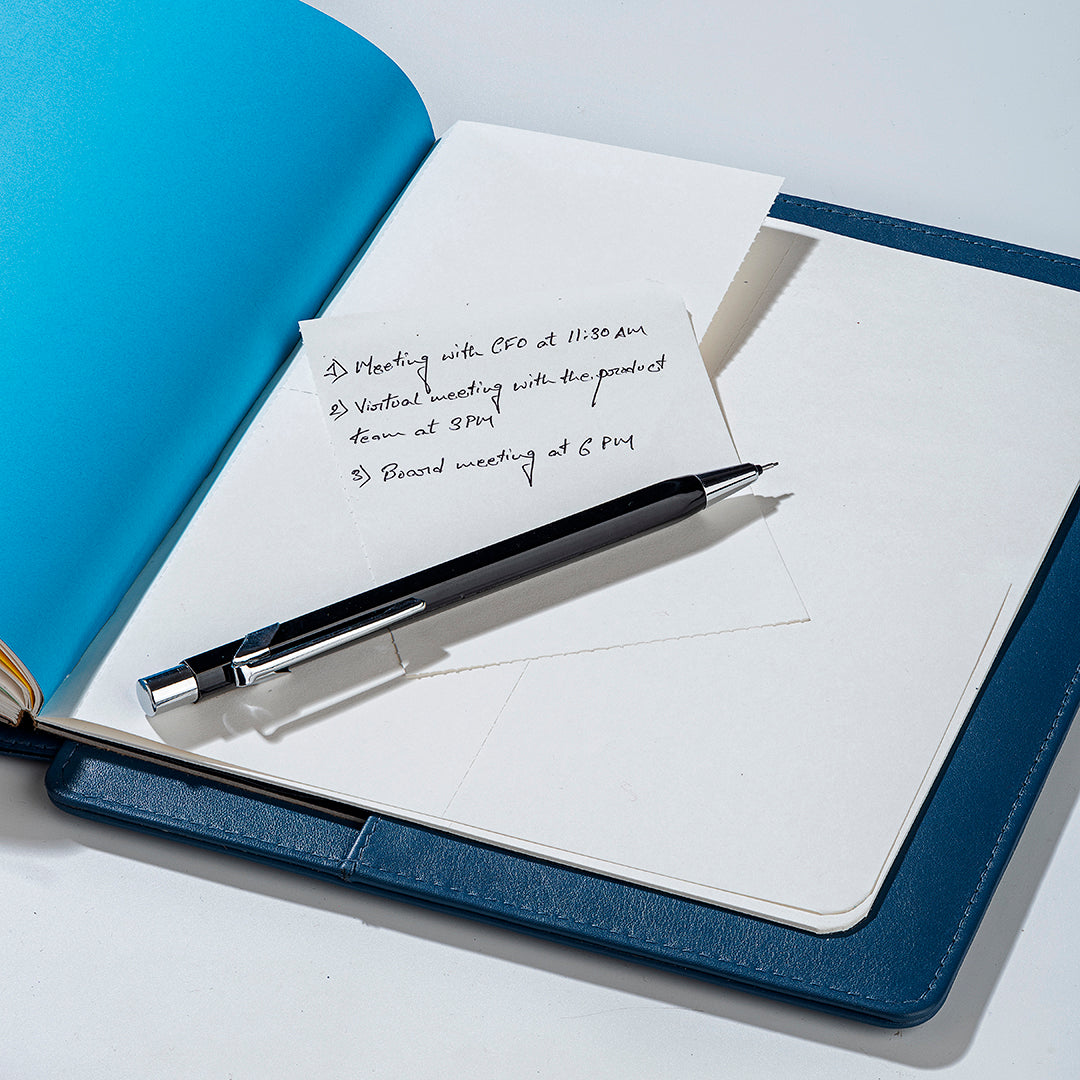 1) Meeting with CFO at 11:30 AM
2) Virtual meeting with the product
team at 3PM
3) Board meeting at 6 PM